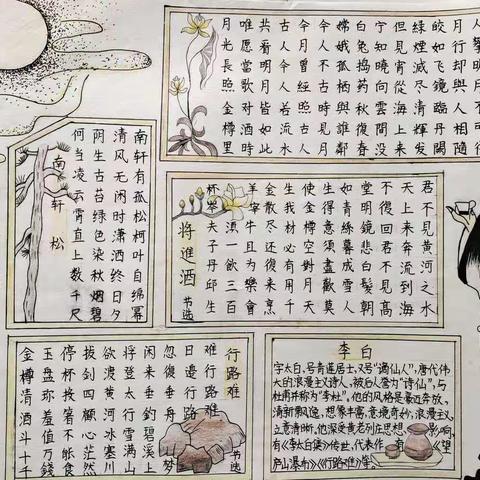 月行却與人相隨
皎如飛鏡臨丹闕
綠煙滅盡清輝發
但見宵從海上来
寧知曉向雲間没
白兔搗藥秋復春
嫦娥孤栖與誰鄰
今人不見古時月
今月曾經照古人
古人今人若流水
共看明月皆如此
唯願當歌對酒時
月光長照金樽里
南轩松
南轩有孤松柯叶自绵幂
清风无闲时潇洒终日夕
阴生古苔绿色染秋烟碧
何当凌云霄直上数千尺
君不見黄河之水
天上来奔流到海
不復回君不見高
堂明鏡悲白髮朝
如青絲暮成雪人
生得意須盡歡莫
使金樽空對月天
生我材必有用千
金散尽還復来烹
羊宰牛且为樂會
須一飲三百
杯岑夫子丹邱生
将進酒
节选
行路难
节选
難行路難
日邊行路
忽復乘舟夢
闲来垂钓碧溪上
将登太行雪满山
欲渡黄河冰塞川
拔剑四顧心茫然
停杯投箸不能食
玉盘珍羞值万錢
金樽清酒斗十千
李白
字太白,号青莲居士,又号"谪仙人",唐代伟
大的浪漫主义诗人,被后人誉为"诗仙",与
杜甫并称为"李杜"。他的风格是豪迈奔放,
清新飘逸,想像丰富,意境奇妙,浪漫主义,
立意清晰,他深受黄老列庄思想影响,
有《李太白集》传世,代表作有《望
庐山瀑布》《行路难》等。